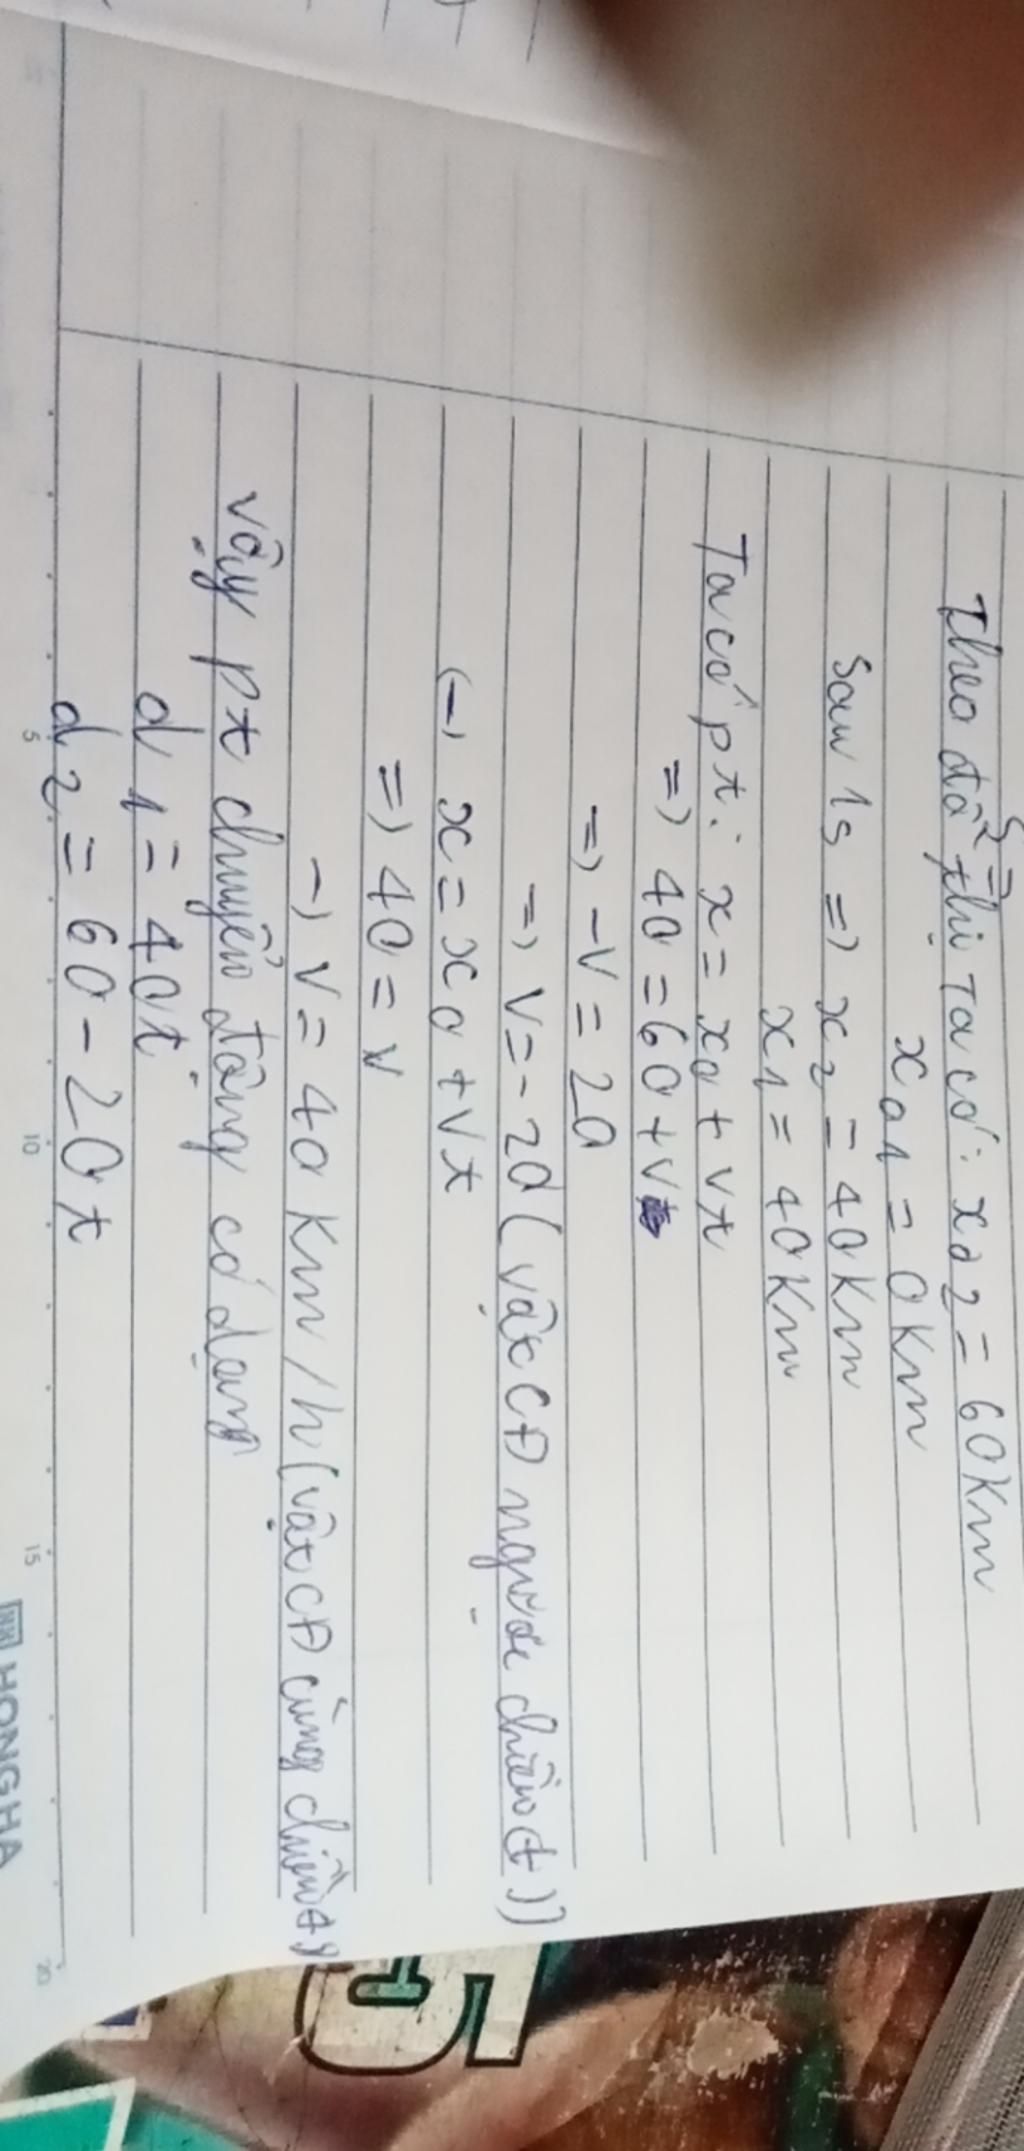 Theo đồ thị Ta có: x02 = 60 Km
x01 = 0 Km
Sau 1s => x2 = 40 Km
x1 = 40 Km
Ta có pt: x = x0 + vt
=> 40 = 60 + v
=> -v = 20
=> v = -20 (vật CĐ ngược chiều (+))
(-) x = x0 + vt
=> 40 = v
-) v = 40 Km/h (vật CĐ cùng chiều
vậy pt chuyển động có dạng
d1 = 40t
d2 = 60 - 20t
5 10 15 20
HONG HA